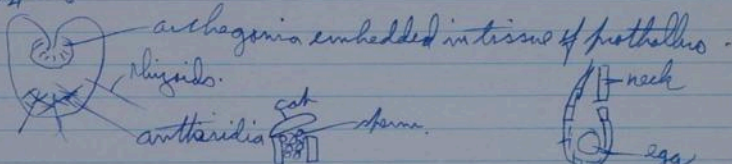 archegonia embedded in tissue of prothallus.
neck
rhizoids.
cap
antheridia
sperm.
egg